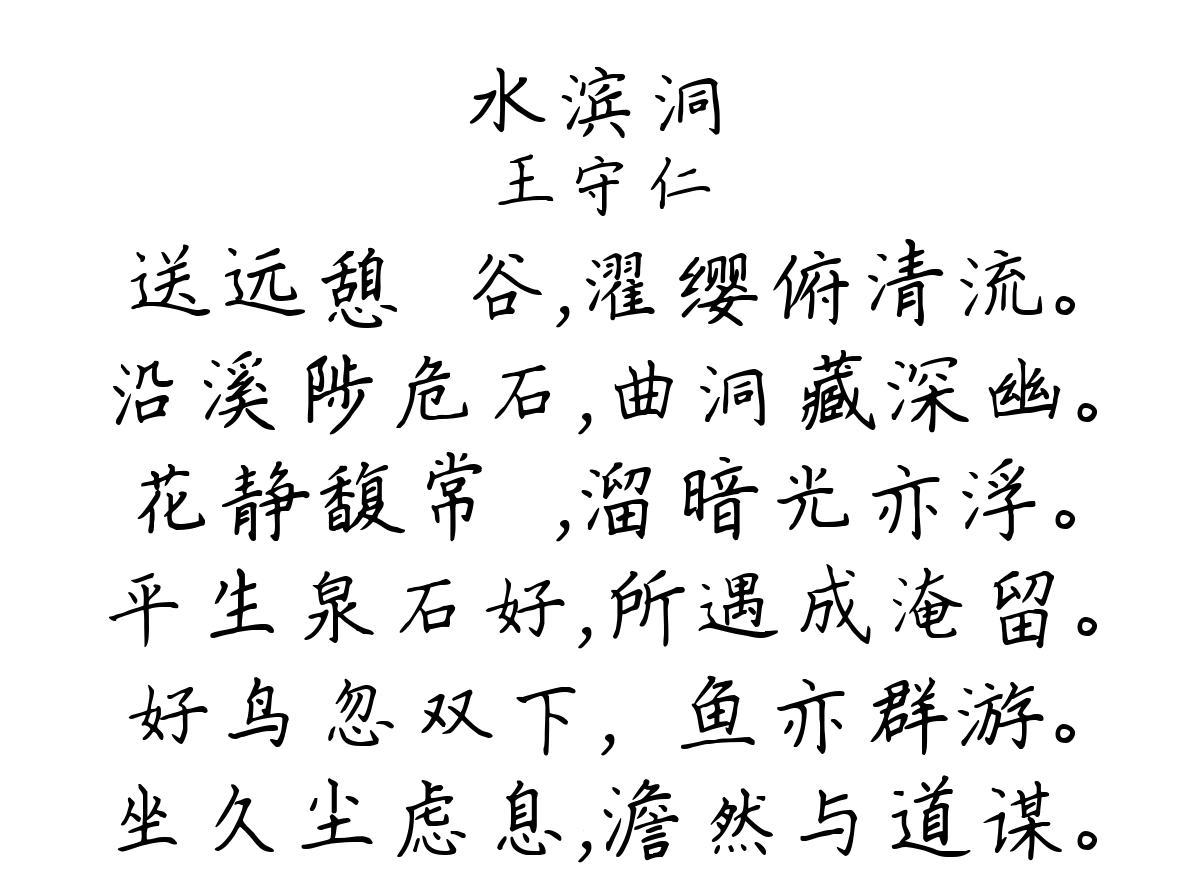 水滨洞
王守仁
送远憩 谷,濯缨俯清流。
沿溪陟危石,曲洞藏深幽。
花静馥常 ,溜暗光亦浮。
平生泉石好,所遇成淹留。
好鸟忽双下, 鱼亦群游。
坐久尘虑息,澹然与道谋。